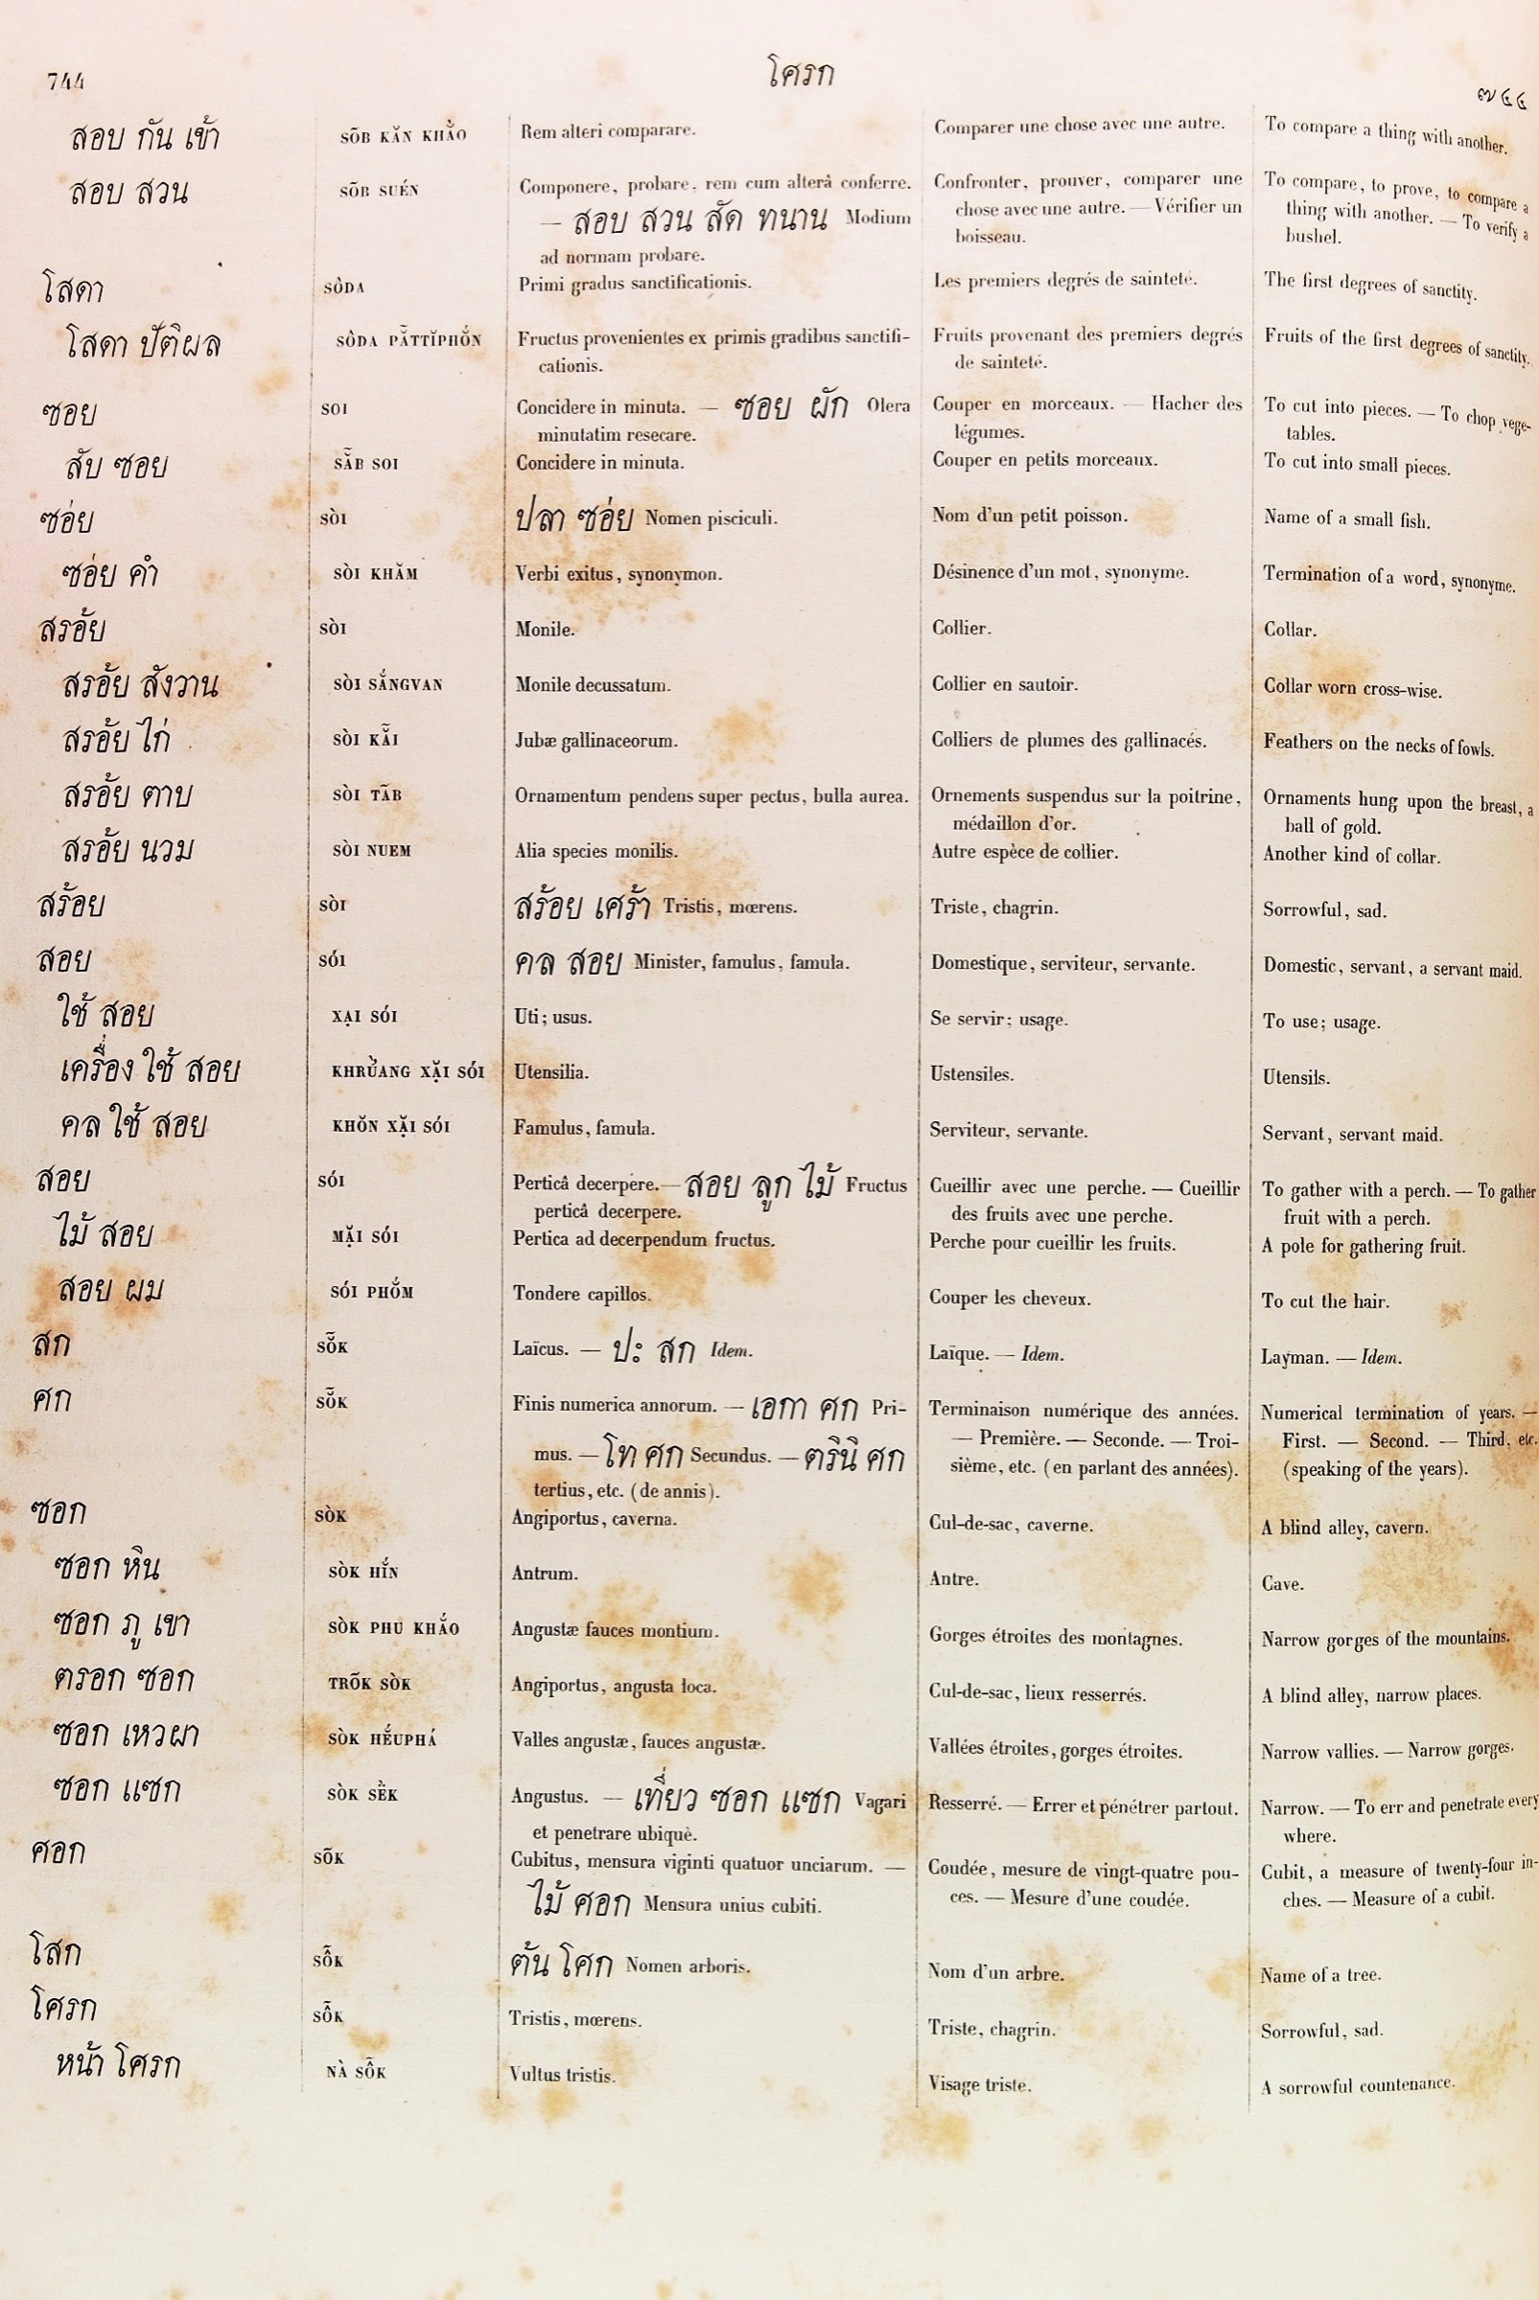 744 โศรก ๗๔๔
สอบ กัน เข้า SÕB KĂN KHÀO Rem alteri comparare. Comparer une chose avec une autre. To compare a thing with another.
สอบ สวน SÕB SUÉN Componere, probare, rem cum alterâ conferre. Confronter, prouver, comparer une To compare, to prove, to compare a
— สอบ สวน สัด ทนาน Modium chose avec une autre. — Vérifier un thing with another. — To verify a
ad normam probare. boisseau. bushel.
โสดา SÔDA Primi gradus sanctificationis. Les premiers degrés de sainteté. The first degrees of sanctity.
โสดา ปัติผล SÔDA PẴTTĬPHŎN Fructus provenientes ex primis gradibus sanctifi- Fruits provenant des premiers degrés Fruits of the first degrees of sanctity.
cationis. de sainteté.
ซอย SOI Concidere in minuta. — ซอย ผัก Olera Couper en morceaux. — Hacher des To cut into pieces. — To chop vege-
minutatim resecare. légumes. tables.
สับ ซอย SẴB SOI Concidere in minuta. Couper en petits morceaux. To cut into small pieces.
ซ่อย SÒI ปลา ซ่อย Nomen pisciculi. Nom d'un petit poisson. Name of a small fish.
ซ่อย คำ SÒI KHĂM Verbi exitus, synonymon. Désinence d'un mot, synonyme. Termination of a word, synonyme.
สรอ้ย SÒI Monile. Collier. Collar.
สรอ้ย สังวาน SÒI SẮNGVAN Monile decussatum. Collier en sautoir. Collar worn cross-wise.
สรอ้ย ไก่ SÒI KẴI Jubæ gallinaceorum. Colliers de plumes des gallinacés. Feathers on the necks of fowls.
สรอ้ย ตาบ SÒI TÃB Ornamentum pendens super pectus, bulla aurea. Ornements suspendus sur la poitrine, Ornaments hung upon the breast, a
médaillon d'or. ball of gold.
สรอ้ย นวม SÒI NUEM Alia species monilis. Autre espèce de collier. Another kind of collar.
สร้อย SÒI สร้อย เศร้า Tristis, mœrens. Triste, chagrin. Sorrowful, sad.
สอย SÓI คล สอย Minister, famulus, famula. Domestique, serviteur, servante. Domestic, servant, a servant maid.
ใช้ สอย XẠI SÓI Uti; usus. Se servir; usage. To use; usage.
เครื่อง ใช้ สอย KHRỪANG XẶI SÓI Utensilia. Ustensiles. Utensils.
คล ใช้ สอย KHŎN XẶI SÓI Famulus, famula. Serviteur, servante. Servant, servant maid.
สอย SÓI Perticâ decerpere. — สอย ลูก ไม้ Fructus Cueillir avec une perche. — Cueillir To gather with a perch. — To gather
perticâ decerpere. des fruits avec une perche. fruit with a perch.
ไม้ สอย MẶI SÓI Pertica ad decerpendum fructus. Perche pour cueillir les fruits. A pole for gathering fruit.
สอย ผม SÓI PHŎM Tondere capillos. Couper les cheveux. To cut the hair.
สก SÕK Laïcus. — ปะ สก Idem. Laïque. — Idem. Layman. — Idem.
ศก SÕK Finis numerica annorum. — เอกา ศก Pri- Terminaison numérique des années. Numerical termination of years. —
mus. — โท ศก Secundus. — ตรินิ ศก — Première. — Seconde. — Troi- First. — Second. — Third, etc.
tertius, etc. (de annis). sième, etc. (en parlant des années). (speaking of the years).
ซอก SÒK Angiportus, caverna. Cul-de-sac, caverne. A blind alley, cavern.
ซอก หิน SÒK HĬN Antrum. Antre. Cave.
ซอก ภู เขา SÒK PHU KHẮO Angustæ fauces montium. Gorges étroites des montagnes. Narrow gorges of the mountains.
ตรอก ซอก TRÕK SÒK Angiportus, angusta loca. Cul-de-sac, lieux resserrés. A blind alley, narrow places.
ซอก เหวผา SÒK HĔUPHÁ Valles angustæ, fauces angustæ. Vallées étroites, gorges étroites. Narrow vallies. — Narrow gorges.
ซอก แซก SÒK SÈK Angustus. — เที่ยว ซอก แซก Vagari Resserré. — Errer et pénétrer partout. Narrow. — To err and penetrate every
et penetrare ubiquè. where.
ศอก SÕK Cubitus, mensura viginti quatuor unciarum. — Coudée, mesure de vingt-quatre pou- Cubit, a measure of twenty-four in-
ไม้ ศอก Mensura unius cubiti. ces. — Mesure d'une coudée. ches. — Measure of a cubit.
โสก SỖK ต้น โศก Nomen arboris. Nom d'un arbre. Name of a tree.
โศรก SỖK Tristis, mœrens. Triste, chagrin. Sorrowful, sad.
หน้า โศรก NÀ SỖK Vultus tristis. Visage triste. A sorrowful countenance.